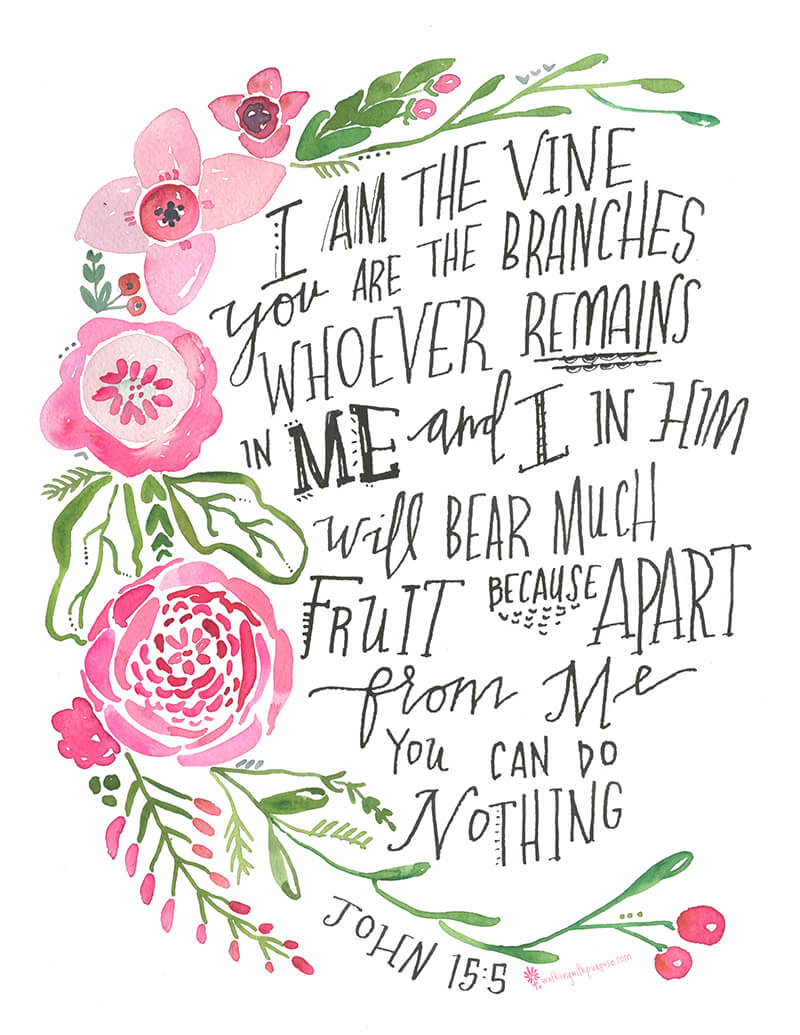 I AM THE VINE
you ARE THE BRANCHES
WHOEVER REMAINS
IN ME and I IN HIM
will BEAR MUCH
FRUIT BECAUSE APART
from Me
YOU CAN DO
NOTHING
JOHN 15:5
walkingwithpurpose.com